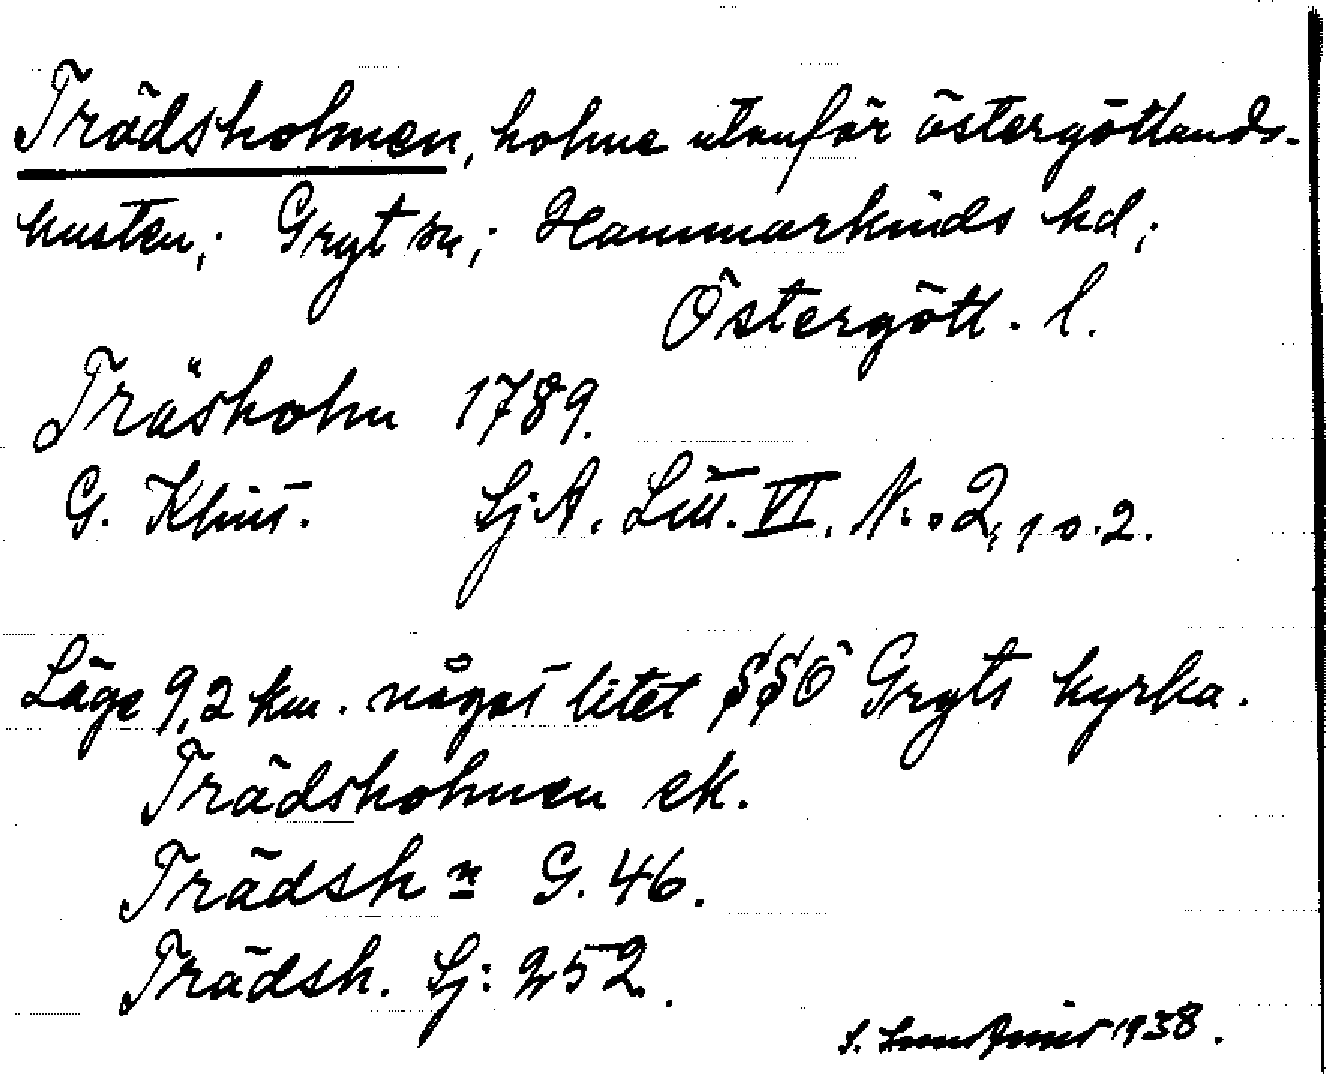 Trädsholmen, holme utanför östergötlands-
kusten; Gryt sn; Hammarkinds hd;
Östergötl. l.
Träsholm 1789.
G. Klint. Sj.A. Litt. VI. N:o 2, 1 o. 2.
Läge 9,2 km. något litet SSÖ Gryts kyrka.
Trädsholmen ek.
Trädshn G. 46.
Trädsh. Sj: 252.
S. 1938.